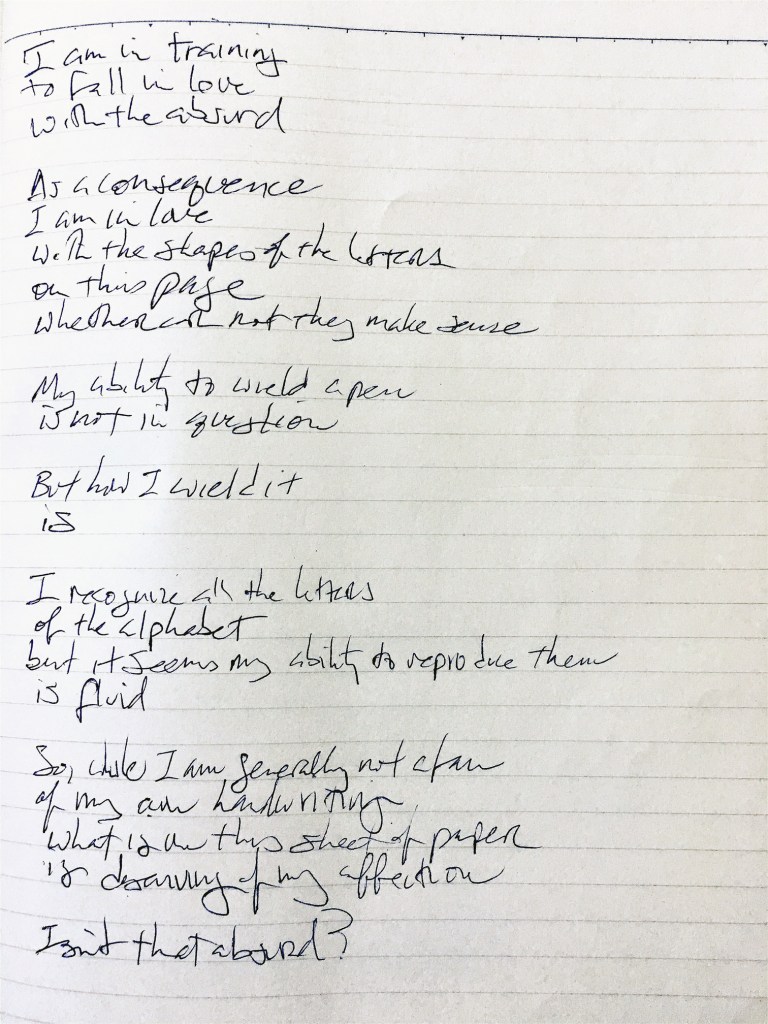 I am in training
to fall in love
with the absurd
As a consequence
I am in love
with the shapes of the letters
on this page
whether or not they make sense
My ability to wield a pen
is not in question
But how I wield it
is
I recognize all the letters
of the alphabet
but it seems my ability to reproduce them
is fluid
So, while I am generally not a fan
of my own handwriting
what is on this sheet of paper
is deserving of my affection
Isn't that absurd?